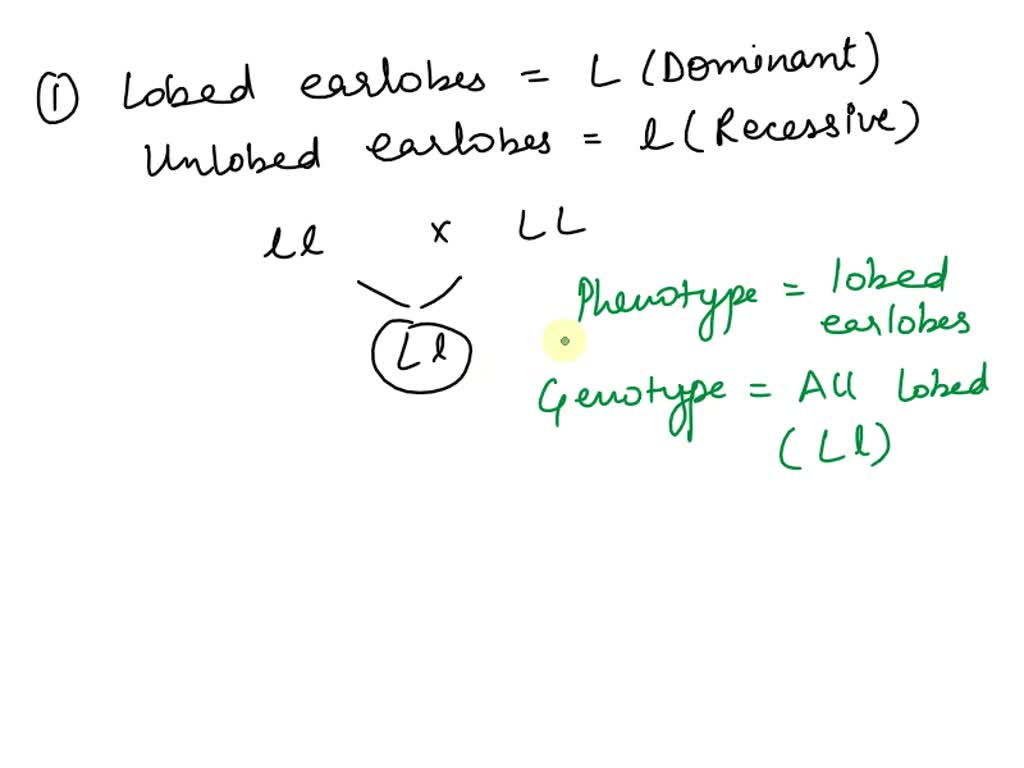 ① Lobed earlobes = L (Dominant)
Unlobed earlobes = l (Recessive)
ll x LL
Ll
Phenotype = lobed
earlobes
Genotype = All lobed
(Ll)